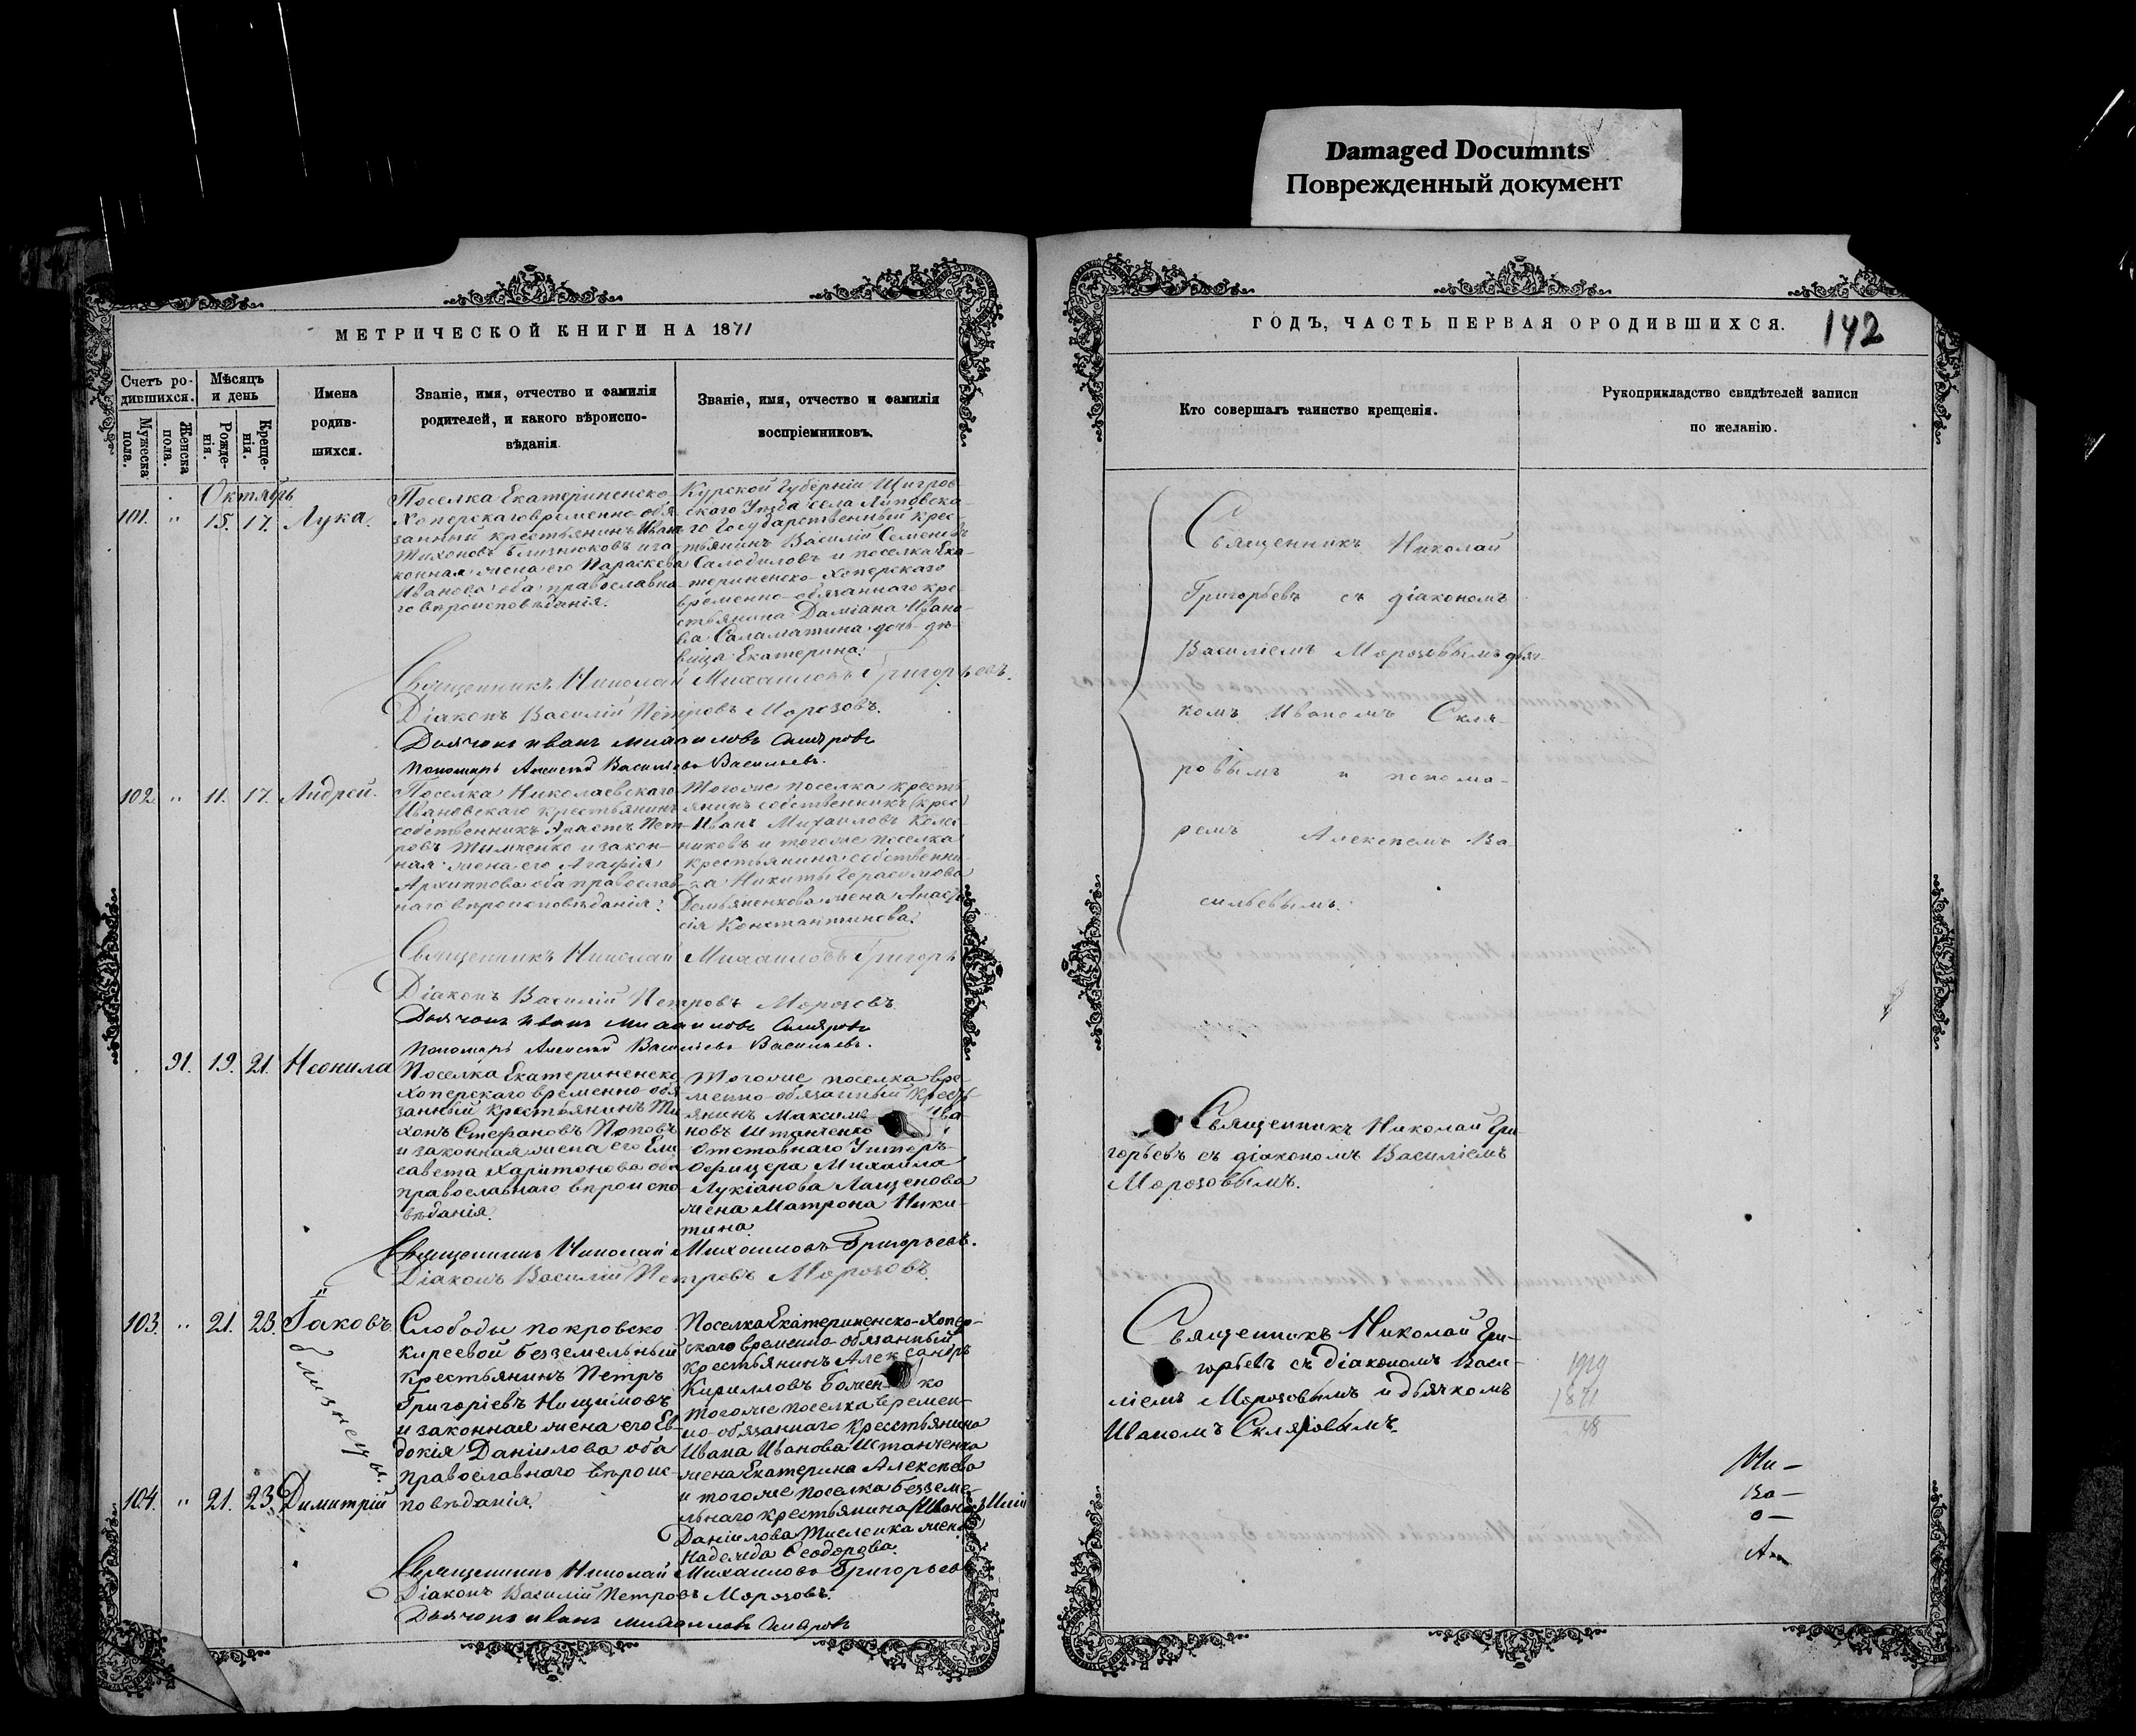 Damaged Documnts
Поврежденный документ
МЕТРИЧЕСКОЙ КНИГИ НА 1871
Счетъ ро-
дившихся.
Мужеска пола.
Женска пола.
Мѣсяцъ
и день
Рожде-
нія.
Креще-
нія.
Имена
родив-
шихся.
Званіе, имя, отчество и фамилія
родителей, и какого вѣроиспо-
вѣданія.
Званіе, имя, отчество и фамилія
воспріемниковъ.
Октябрь
101. " 15. 17. Лука.
Поселка Екатериненско
Хоперскаго временно-обя
занный крестьянинъ Иванъ
Тихоновъ Близнюковъ и за
конная жена его Параскева
Иванова оба православна
го вѣроисповѣданія.
Курской Губерніи Щигров
скаго Уѣзда села Липовска
го Государственный крес-
тьянинъ Василій Семеновъ
Салодиловъ и поселка Ека-
териненско-Хоперскаго
временно-обязаннаго кре-
стьянина Даміана Ивано-
ва Саламатина дочь дѣ-
вица Екатерина.
Священникъ Николай Михаиловъ Григорьевъ.
Діаконъ Василій Петровъ Морозовъ.
Дьячокъ Иванъ Михаиловъ Скляровъ
Пономарь Алексѣй Васильевъ Васильевъ.
102. " 11. 17. Андрей.
Поселка Николаевскаго
Ивановскаго крестьянинъ
собственникъ Пет-
ровъ Тимченко и закон-
ная жена его Агафія
Архиппова оба православ-
наго вѣроисповѣданія.
Тогоже поселка кресть
янинъ собственникъ (крес)
Иванъ Михаиловъ Колес-
никовъ и тогоже поселка
крестьянина собственни-
ка Никиты Герасимова
Демьяненкова жена Анаста
сія Константинова.
Священникъ Николай Михаиловъ Григорь
Діаконъ Василій Петровъ Морозовъ
Дьячокъ Иванъ Михаиловъ Скляровъ
Пономарь Алексѣй Васильевъ Васильевъ.
91. 19. 21. Неонила
Поселка Екатериненско
Хоперскаго временно-обя
занный крестьянинъ Ти
хонъ Стефановъ Поповъ
и законная жена его Ели
савета Харитонова оба
православнаго вѣроиспо-
вѣданія.
Тогоже поселка вре-
менно-обязанный кресть
янинъ Максимъ Ива-
новъ Штанченко и
Отставнаго Унтеръ-
Офицера Михаила
Лукіанова Лащенова
жена Матрона Ники-
тина.
Священникъ Николай Михаиловъ Григорьевъ.
Діаконъ Василій Петровъ Морозовъ.
103. " 21. 23. Іаковъ.
близнецы.
104. " 21. 23. Димитрій
Слободы Покровско
Киреевой безземельный
крестьянинъ Петръ
Григоріевъ Нищимовъ
и законная жена его Ев-
докія Даніилова оба
православнаго вѣроис-
повѣданія.
Поселка Екатериненско-Хопер-
скаго временно-обязанный
крестьянинъ Александръ
Кирилловъ Божен ко
тогоже поселка времен-
но-обязаннаго крестьянина
Ивана Иванова Штанченка
жена Екатерина Алексѣева
и тогоже поселка безземе-
льнаго крестьянина
Даніилова Тисленка жена
Надежда Ѳеодорова.
Священникъ Николай Михаиловъ Григорьевъ
Діаконъ Василій Петровъ Морозовъ.
Дьячокъ Иванъ Михаиловъ Скляровъ
ГОДЪ, ЧАСТЬ ПЕРВАЯ О РОДИВШИХСЯ.
142
Кто совершалъ таинство крещенія.
Рукоприкладство свидѣтелей записи
по желанію.
Священникъ Николай
Григорьевъ съ діакономъ
Василіемъ Морозовымъ дьяч-
комъ Иваномъ Скля-
ровымъ и понома-
ремъ Алексѣемъ Ва-
сильевымъ.
Священникъ Николай Гри
горьевъ съ діакономъ Василіемъ
Морозовымъ.
Священникъ Николай Гри-
горьевъ съ діакономъ Васи-
ліемъ Морозовымъ и дьячкомъ
Иваномъ Скляровымъ.
1919
1871
48
Ми-
Ва-
о-